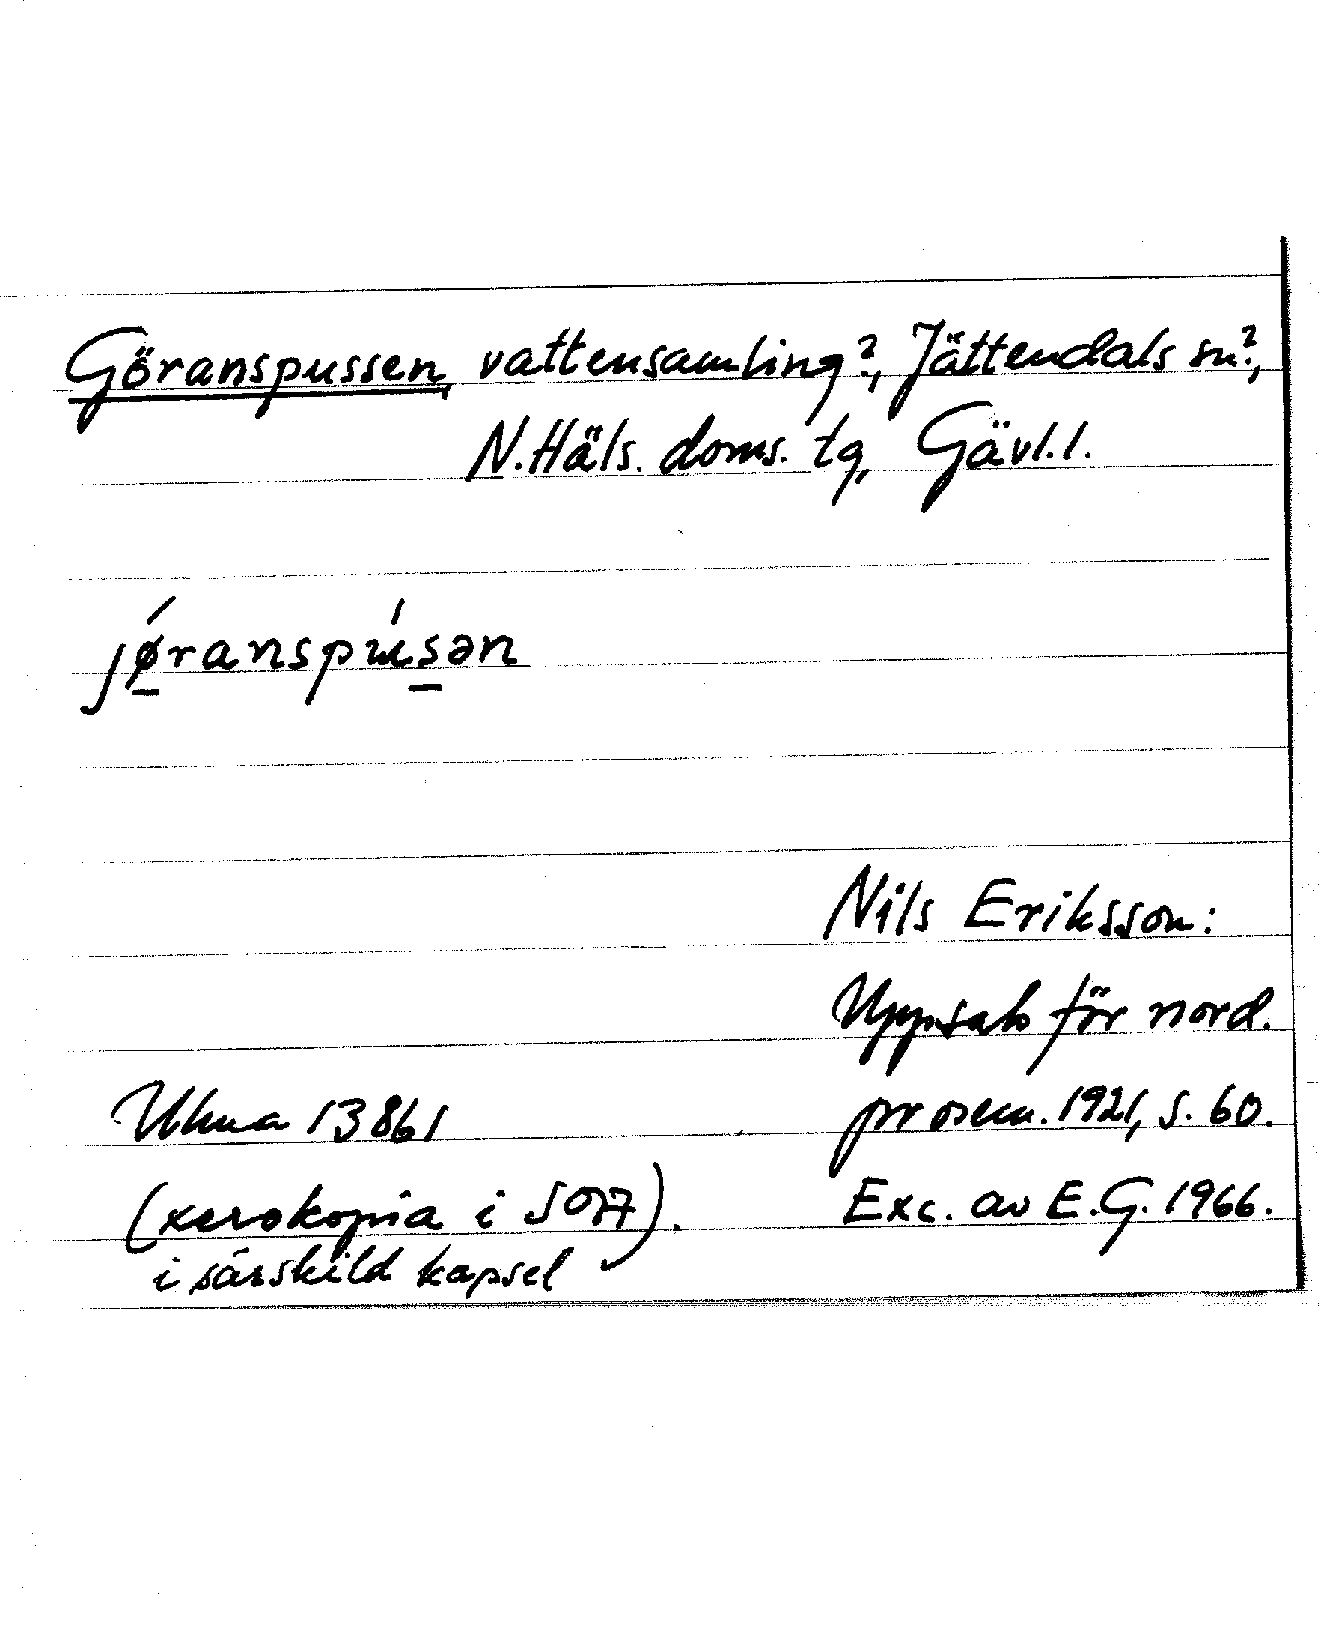 Göranspussen, vattensamling?, Jättendals sn?,
N. Häls. doms. tg, Gävl. l.
jǿ̱ranspús̱ən
Nils Eriksson:
Uppsats för nord.
prosem. 1921, s. 60.
Ulma 13861
(xerokopia i SOA).
i särskild kapsel
Exc. av E.G. 1966.